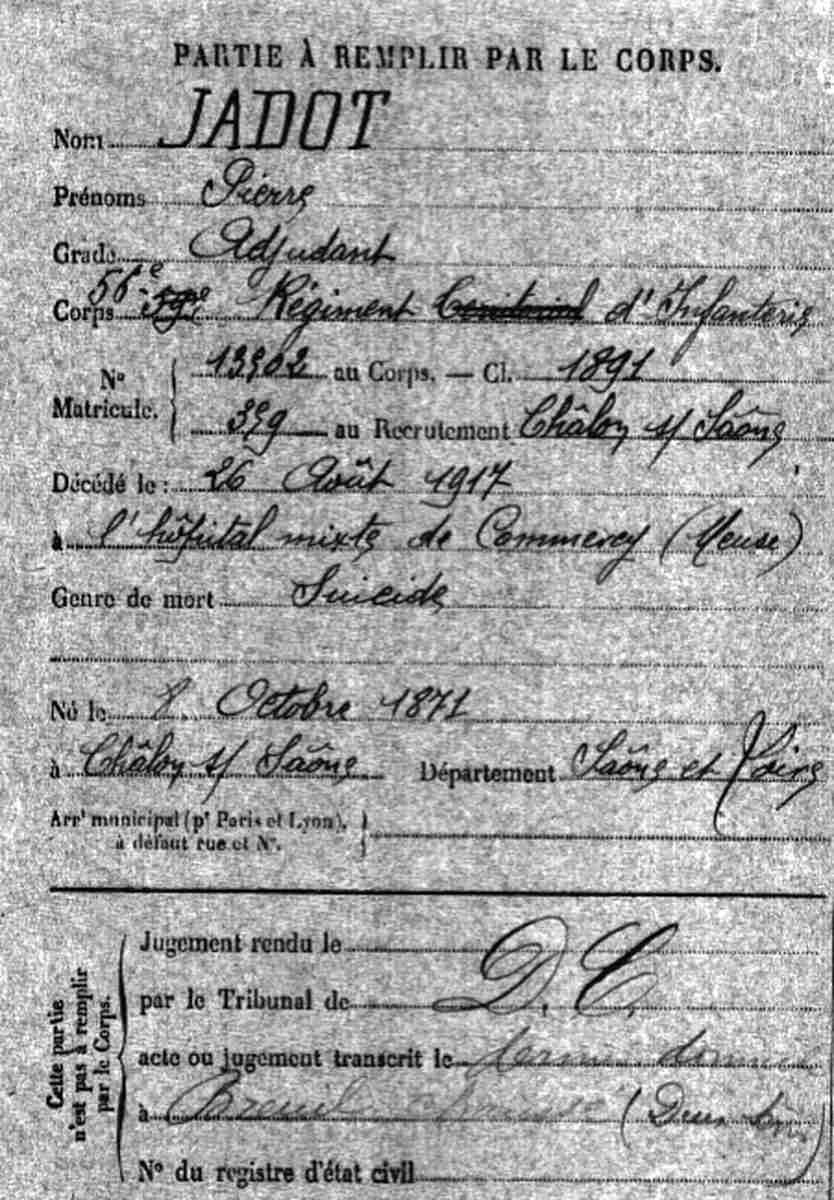 PARTIE À REMPLIR PAR LE CORPS.
Nom JADOT
Prénoms Pierre
Grade Adjudant
Corps 56e 59e Régiment Territorial d'Infanterie
No Matricule. 13902 au Corps. — Cl. 1891
359 au Recrutement Châlon s/ Saône
Décédé le : 26 Août 1917
à l'hôpital mixte de Commercy (Meuse)
Genre de mort Suicide
Né le 8 Octobre 1871
à Châlon s/ Saône Département Saône et Loire
Arrt municipal (pr Paris et Lyon),
à défaut rue et No.
Cette partie n'est pas à remplir par le Corps.
Jugement rendu le D. C.
par le Tribunal de
acte ou jugement transcrit le
à (Deux
No du registre d'état civil